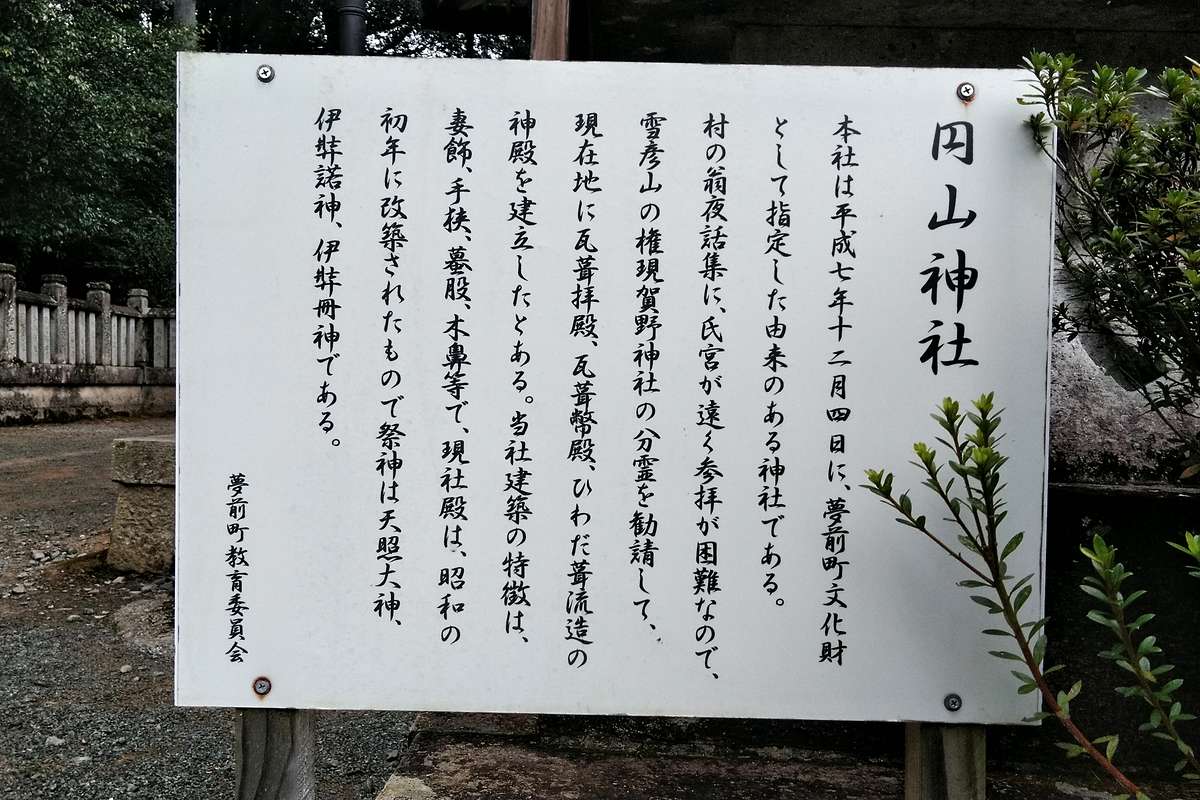 円山神社
本社は平成七年十二月四日に、夢前町文化財
として指定した由来のある神社である。
村の翁夜話集に、氏宮が遠く参拝が困難なので、
雪彦山の権現賀野神社の分霊を勧請して、
現在地に瓦葺拝殿、瓦葺幣殿、ひわだ葺流造の
神殿を建立したとある。当社建築の特徴は、
妻飾、手挟、蟇股、木鼻等で、現社殿は、昭和の
初年に改築されたもので祭神は天照大神、
伊弉諾神、伊弉冊神である。
夢前町教育委員会